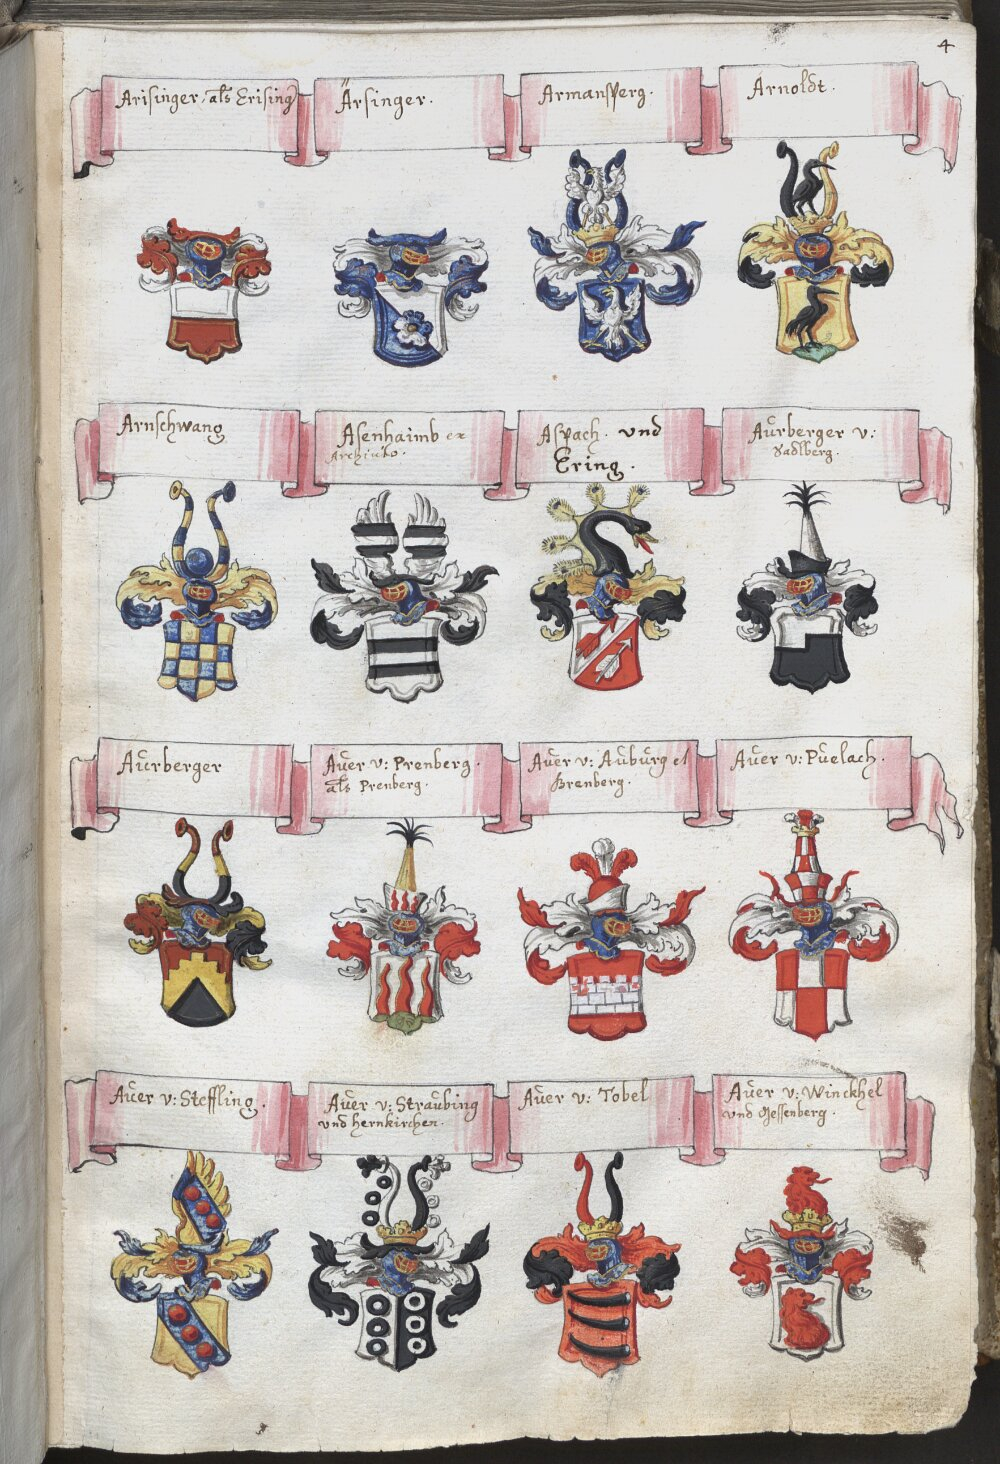 4
Arisinger, als Erising
Ärsinger.
Armansperg.
Arnoldt.
Arnschwang
Asenhaimb ex
Archivio.
Aspach. und
Ering.
Aurberger v:
Sadlberg.
Aurberger
Auer v: Prenberg.
als Prenberg.
Auer v: Auburg et
Brenberg.
Auer v: Puelach.
Auer v: Steffling.
Auer v: Straubing
und hernkirchen.
Auer v: Tobel
Auer v: Winckhel
und Gessenberg.